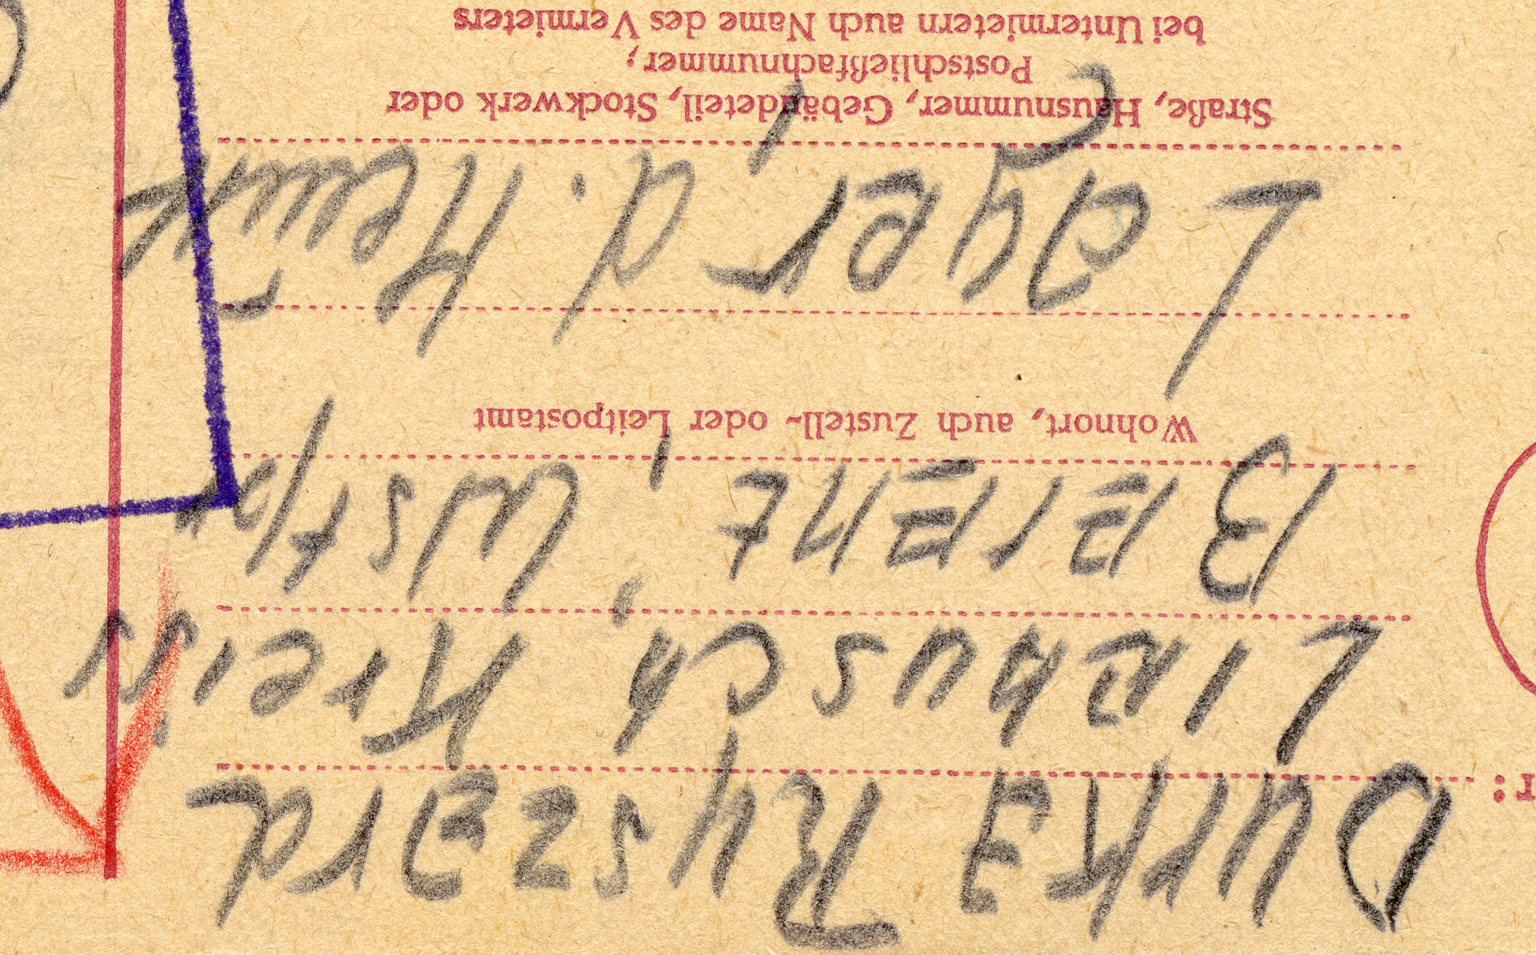 r: Durka Ryszard
Liebusch, Kreis
Berent,
Wohnort, auch Zustell- oder Leitpostamt
Lager, d.
Straße, Hausnummer, Gebäudeteil, Stockwerk oder
Postschließfachnummer;
bei Untermietern auch Name des Vermieters